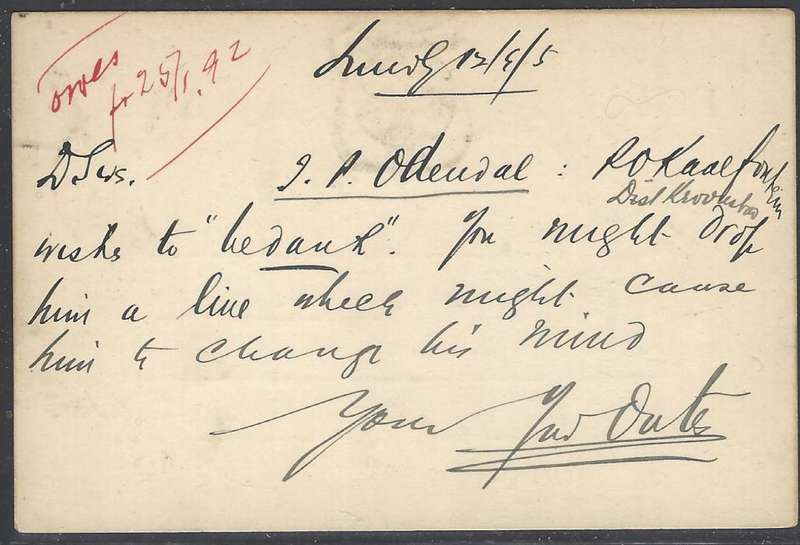 owes
fr 25/1.92
12/9/5
D Sirs. J. P. Odendal : P O Kaalfontein
Dist Kroonstad
wishes to "bedank". You might drop
him a line which might cause
him to change his mind
Yours